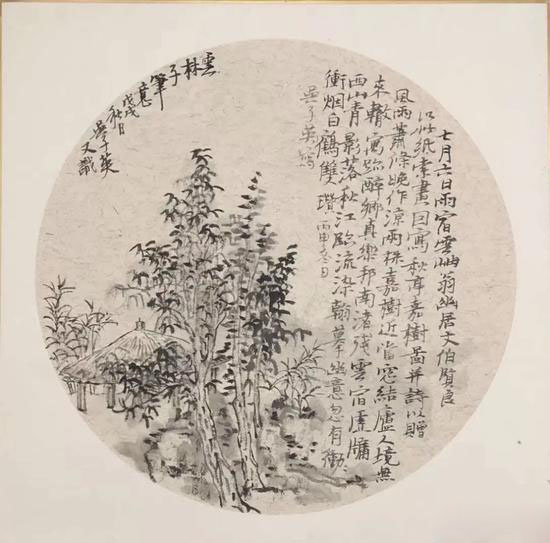 七月六日雨宿雲岫翁幽居文伯賢良
以此紙索畫因寫秋亭嘉樹圖并詩以贈
風雨蕭條晚作涼兩株嘉樹近當窗結廬人境無
來轍寓跡醉鄉真樂邦南渚殘雲宿虛牖
西山青影落秋江臨流染翰摹幽意忽有衝
衝烟白鶴雙瓚丙申冬日
吳子英寫
雲林子筆意
戊戌秋月
吳子英
又識